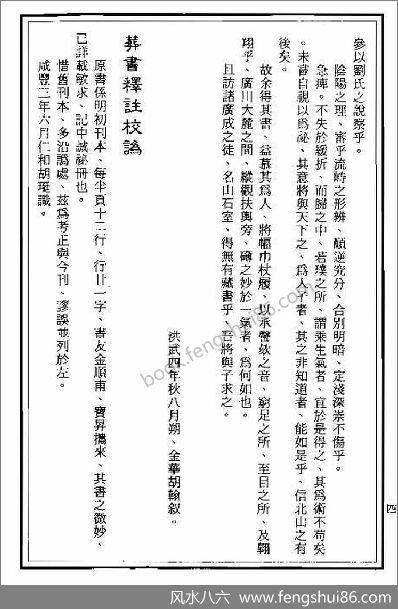 參以劉氏之說察乎。
陰陽之理、審乎流峙之形辨、顛逆究分、合別明暗、定淺深崇不傷乎。
急痺。不失於緩折、而歸之中、若璞之所、謂乘生氣者、宜於是得之、其爲術不苟矣
。未嘗自視以爲祕、其意將與天下之、爲人子者、其之非知道者、能如是乎、信北山之有
後矣。
故余得其書、益慕其爲人、將幅巾杖屨、以承謦欬之音、窮足之所、至目之所、及翺
翔乎、廣川大麓之間、縱觀扶輿旁、礴之妙於一氣者、爲何如也。
且訪諸廣成之徒、名山石室、得無有藏書乎、吾將與子求之。
洪武四年秋八月朔、金華胡翰叙。
葬書釋註校譌
原書係明初刊本、每半頁十二行、行廿一字、書友金順甫、寶昇攜來、其書之微妙、
已詳載敏求、記中誠祕冊也。
惜舊刊本、多沿譌處、茲爲考正與今刊、謬誤並列於左。
咸豐三年六月仁和胡珽識。
四
book.fengshui86.com
风水八六 www.fengshui86.com